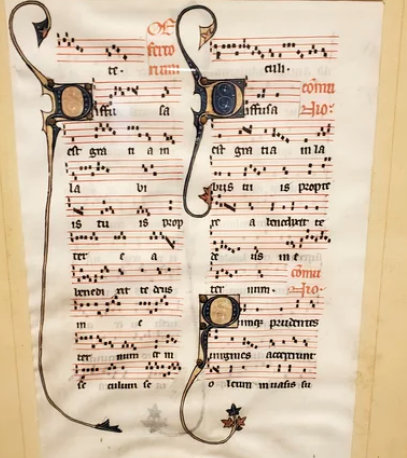 te.
Offertorium
Diffu sa
est gra ti a in
la bi
is tu is prop
ter e a
benedi xit te deus
in e
ter num et in
se culum se
culi.
Diffusa
est gra tia in la
bus tu is propte
re a benedixit te
de us in e
ter num.
Quinque prudentes
uirgines acceperunt
oleum in uasis su